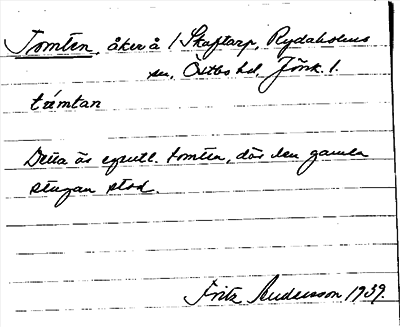 Tomten, åker å 1 Skaftarp, Rydaholms
sn, Östbo hd, Jönk. l.
trémtan
Detta är egentl. tomten, där den gamla
stugan stod.
Fritz Andersson 1939.